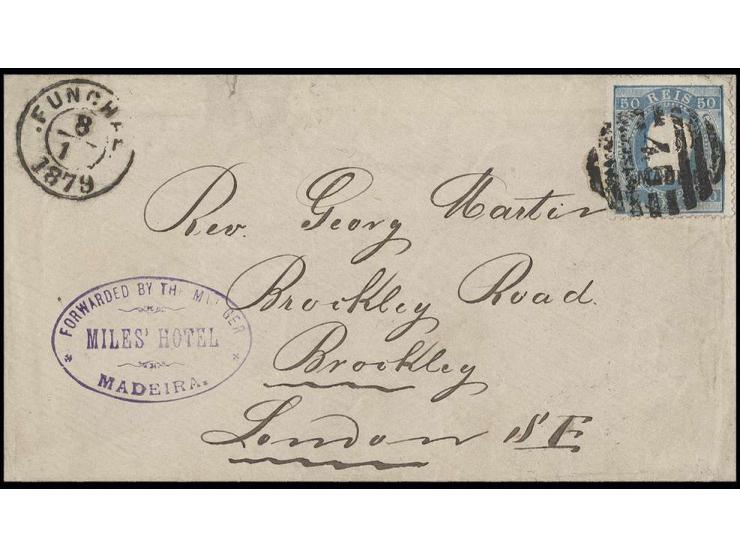 FUNCHAL
8
1
1879
50 REIS 50
Rev. Georg Martin
Brockley Road.
Brockley
London S E.
FORWARDED BY THE
MILES' HOTEL
MADEIRA.